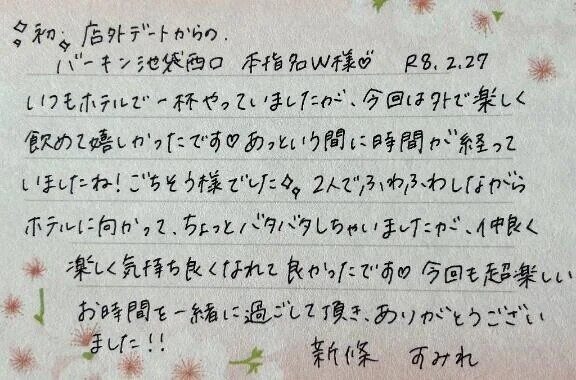 初・店外デートからの、
バーキン池袋西口 本指名W様♡ R8.2.27
いつもホテルで一杯やっていましたが、今回は外で楽しく
飲めて嬉しかったです♡あっという間に時間が経って
いましたね!ごちそう様でした 2人でふわふわしながら
ホテルに向かって、ちょっとバタバタしちゃいましたが、仲良く
楽しく気持ち良くなれて良かったです♡今回も超楽しい
お時間を一緒に過ごして頂き、ありがとうござい
ました!! 新條 すみれ